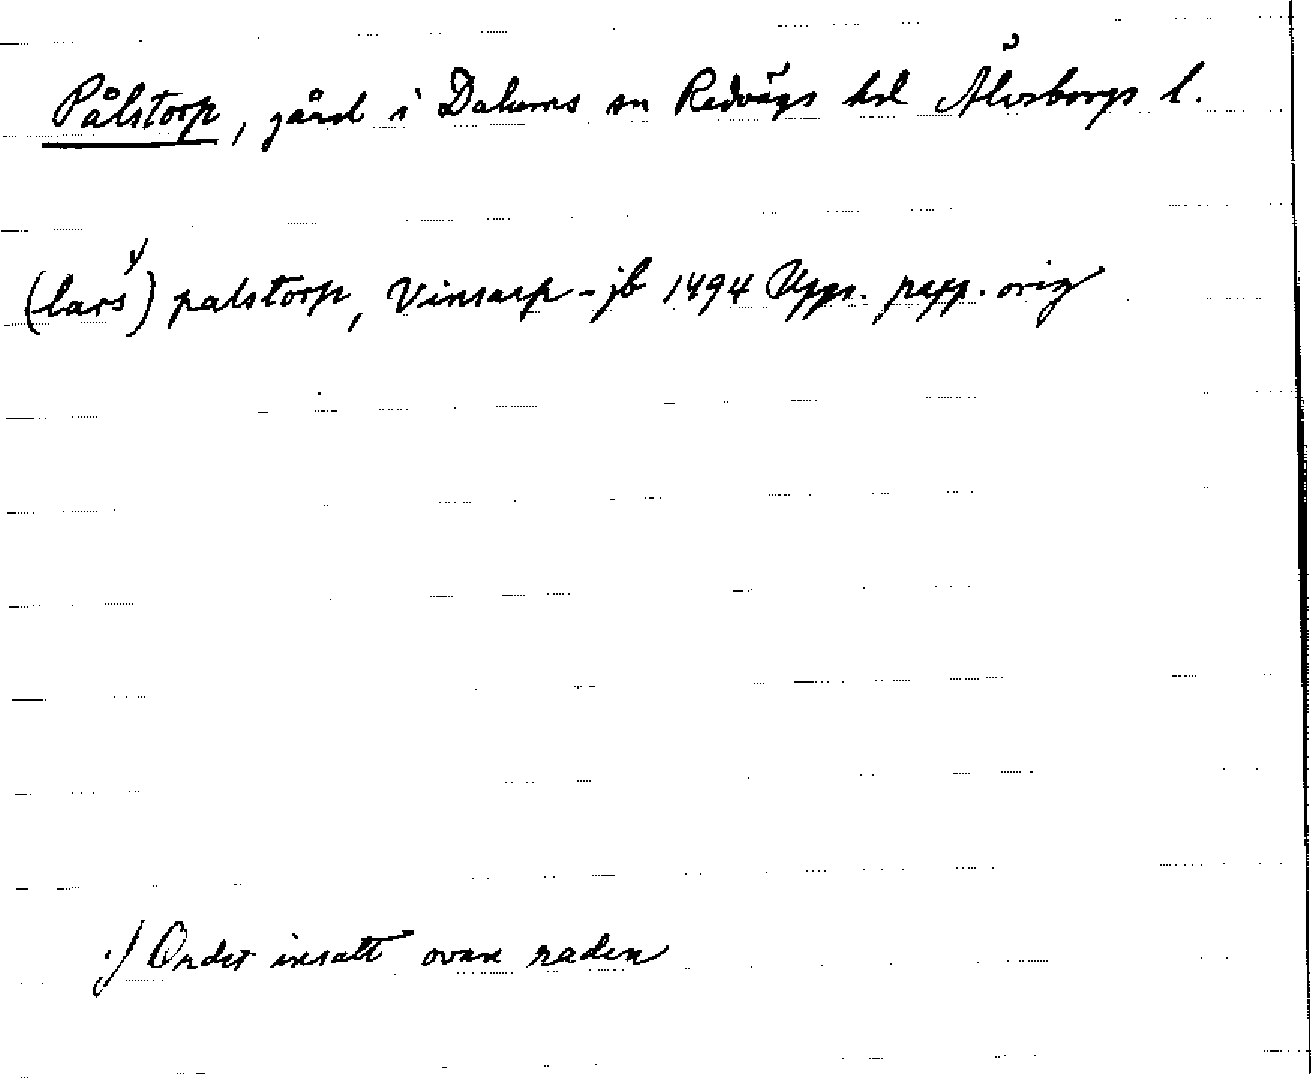 Pålstorp, gård i Dalums sn Redvägs hd Älvsborgs l.
(lars¹⁾) palstorp, Vinsarp-jb 1494 Upps. papp. orig
¹⁾ Ordet insatt ovan raden